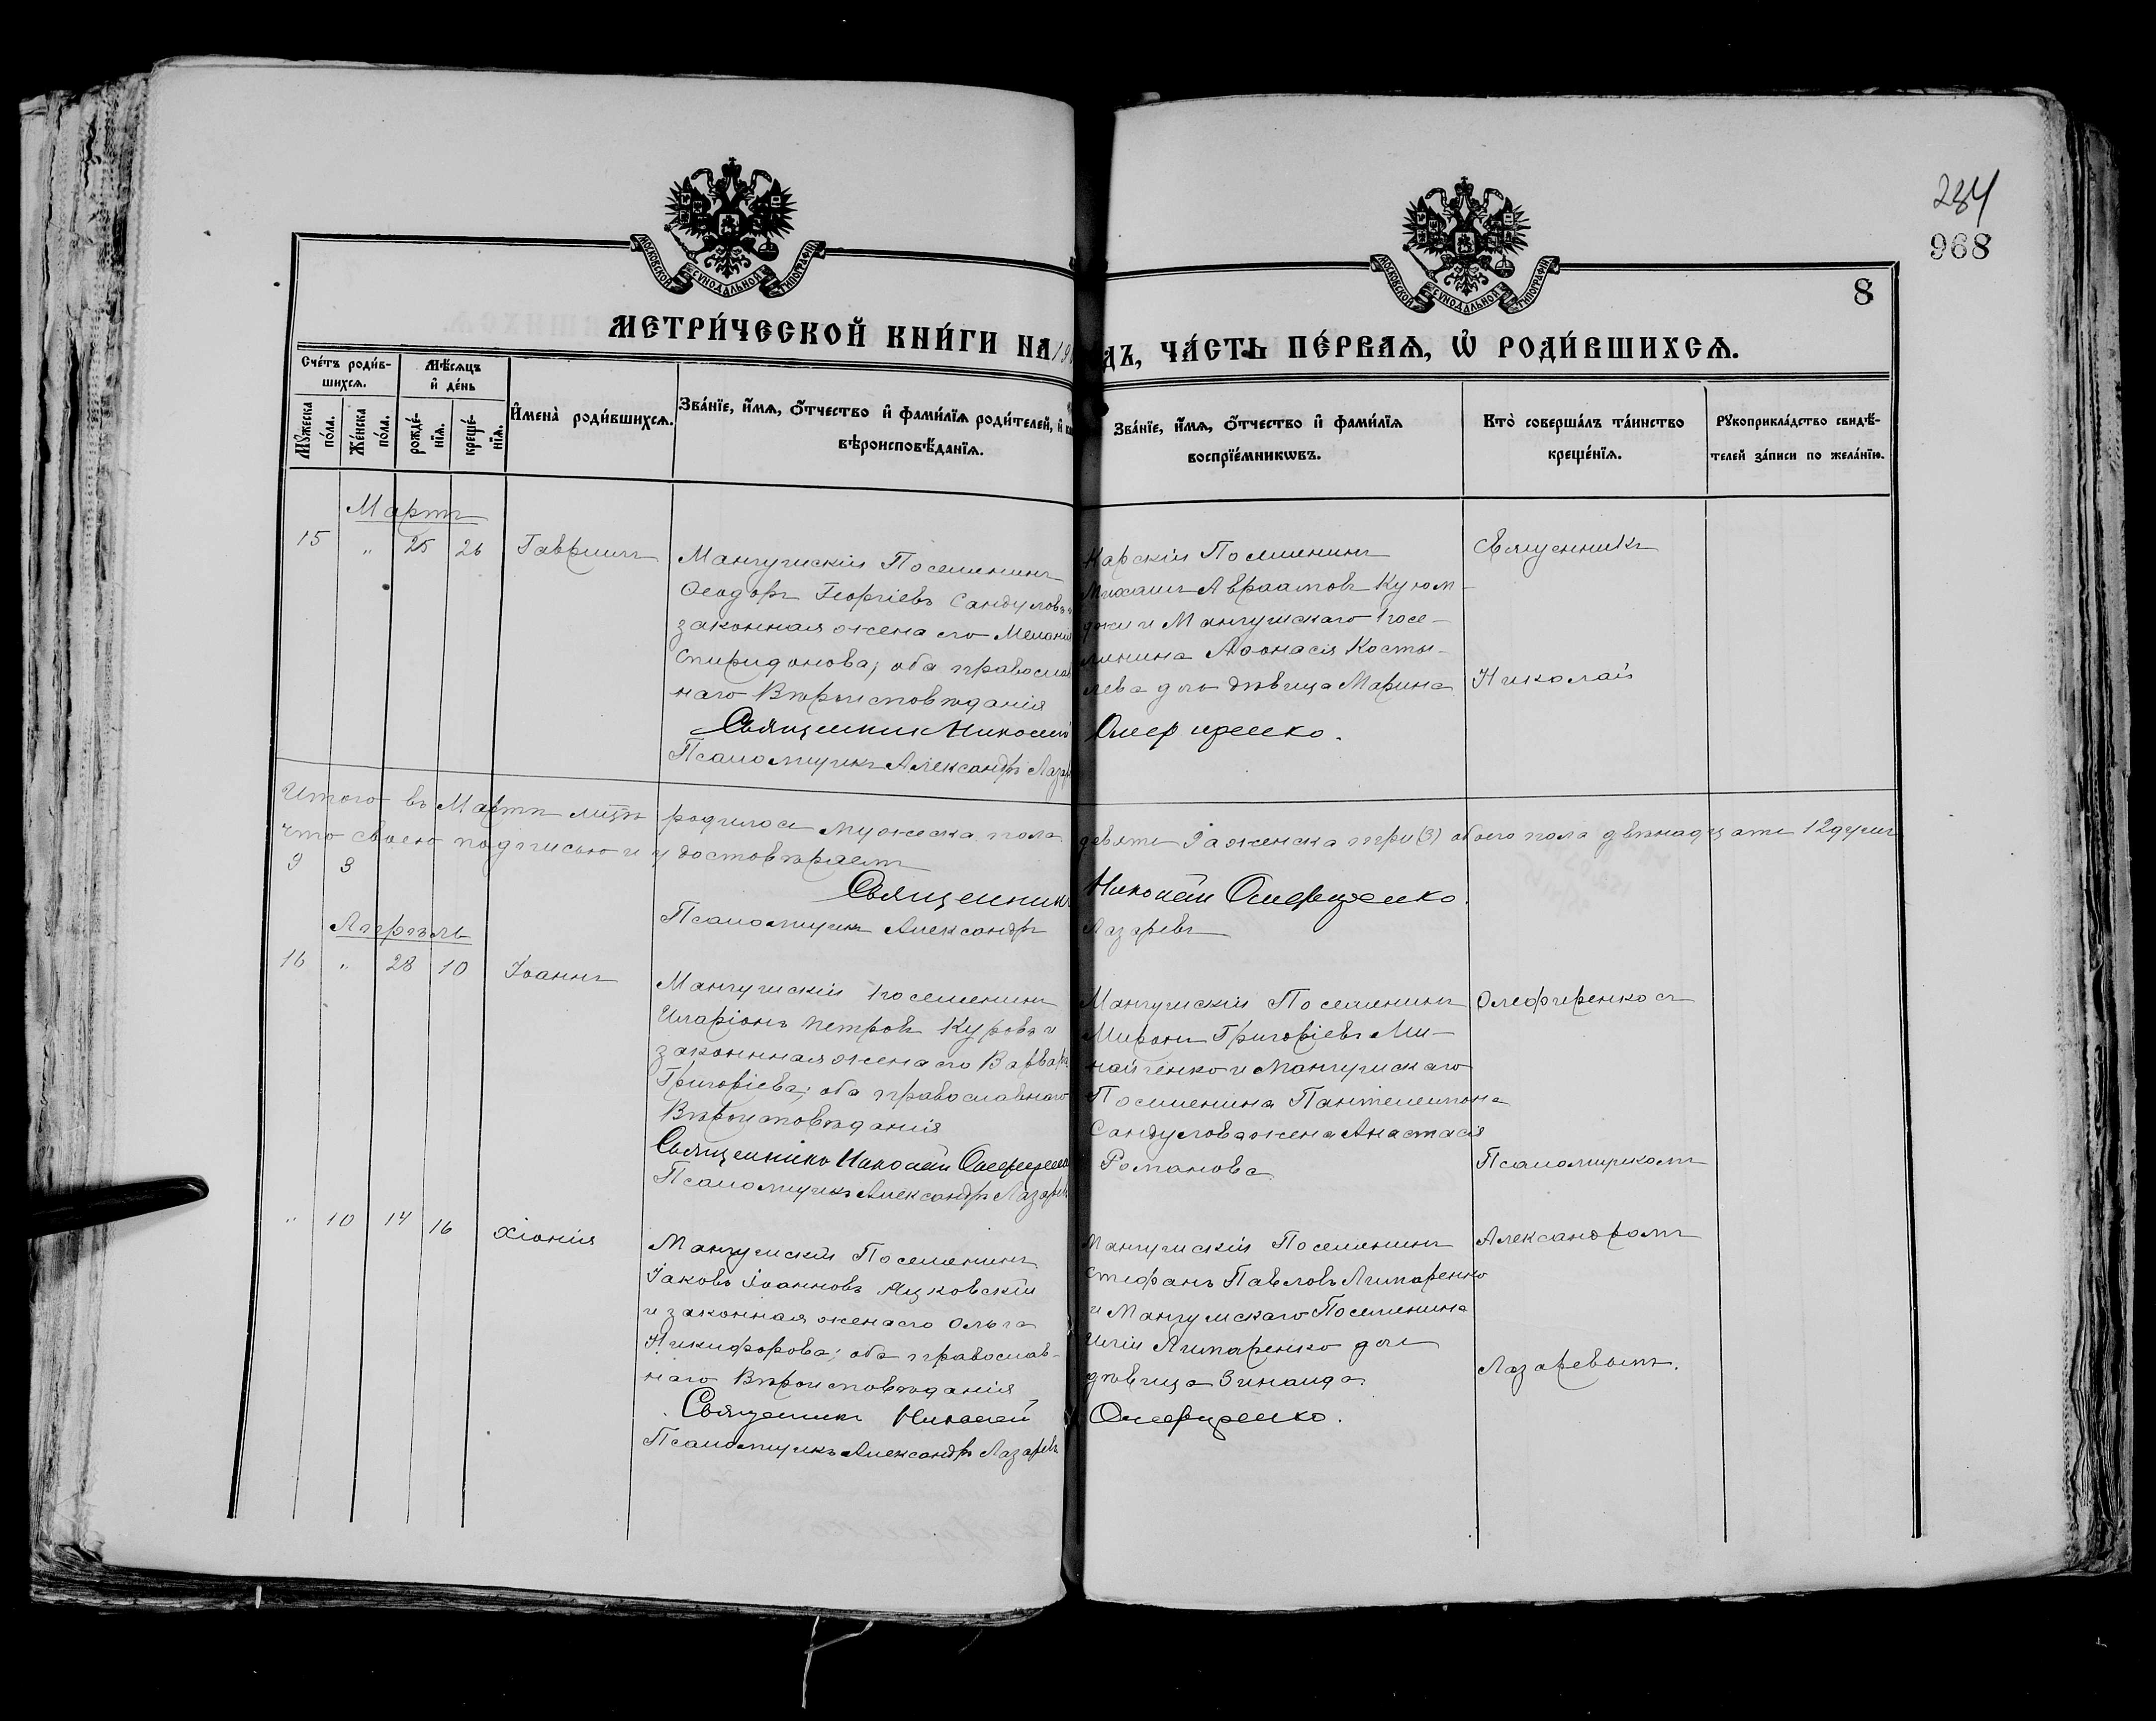 284
968
8
МОСКОВСКОЙ СУНОДАЛЬНОЙ ТИПОГРАФІИ
МОСКОВСКОЙ СУНОДАЛЬНОЙ ТИПОГРАФІИ
МЕТРИ́ЧЕСКОЙ КНИ́ГИ НА 19
ДЪ, ЧА́СТЬ ПЕ́РВАѦ, Ѡ҆ РОДИ́ВШИХСѦ.
Сче́тъ роди́в-
шихсѧ.
Мѣ́сѧцъ
и҆ де́нь
Мꙋ́жеска
по́ла.
Же́нска
по́ла.
рожде́-
нїѧ.
креще́-
нїѧ.
И҆мена̀ роди́вшихсѧ.
Зва́нїе, и҆́мѧ, ѻ҆́тчество и҆ фами́лїѧ роди́телей, и҆
вѣроисповѣ́данїѧ.
Зва́нїе, и҆́мѧ, ѻ҆́тчество и҆ фами́лїѧ
воспрїе́мникѡвъ.
Кто̀ соверша́лъ та́инство
креще́нїѧ.
Рꙋкоприкла́дство свидѣ́-
телей за́писи по жела́нїю.
Мартъ
15 " 25 26 Гавріилъ
Мангушскій Поселянинъ
Ѳеодоръ Георгіевъ Сандуловъ и
законная жена его Меланія
Спиридонова; оба православ
наго Вѣроисповѣданія
Священник Николай
Псаломщикъ Александръ Лазар
Карскій Поселянинъ
Михаилъ Авраамовъ Куюм-
джи и Мангушскаго Посе-
лянина Аѳонасія Косты-
лева дочь дѣвица Марина
Олефиренко.
Священникъ
Николай
Итого въ Мартѣ мцѣ родилось мужеска пола девять 9 а женска три (3) обоего пола двѣнадцать 12 душъ
что своею подписью и удостовѣряемъ
9 3
Священник Николай Олефиренко.
Псаломщикъ Александръ Лазаревъ
Апрѣль
16 " 28 10 Іоаннъ
Мангушскій Поселянинъ
Иларіонъ Петровъ Куровъ и
законная жена его Варвара
Григоріева; оба православнаго
Вѣроисповѣданія
Священникъ Николай Олефирен
Псаломщикъ Александръ Лазаревъ
Мангушскій Поселянинъ
Миронъ Григоріевъ Ми-
найченко и Мангушскаго
Поселянина Пантелеимона
Сандулова жена Анастасія
Романова
Олефиренко съ
Псаломщикомъ
" 10 14 16 Хіонія
Мангушскій Поселянинъ
Іаковъ Іоанновъ Яцковскій
и законная жена его Ольга
Никифорова; оба православ-
наго Вѣроисповѣданія
Священникъ Николай
Псаломщикъ Александръ Лазаревъ
Мангушскій Поселянинъ
Стефанъ Павловъ Лимаренко
и Мангушскаго Поселянина
Иліи Лимаренко дочь
дѣвица Зинаида
Олефиренко.
Александромъ
Лазаревымъ.